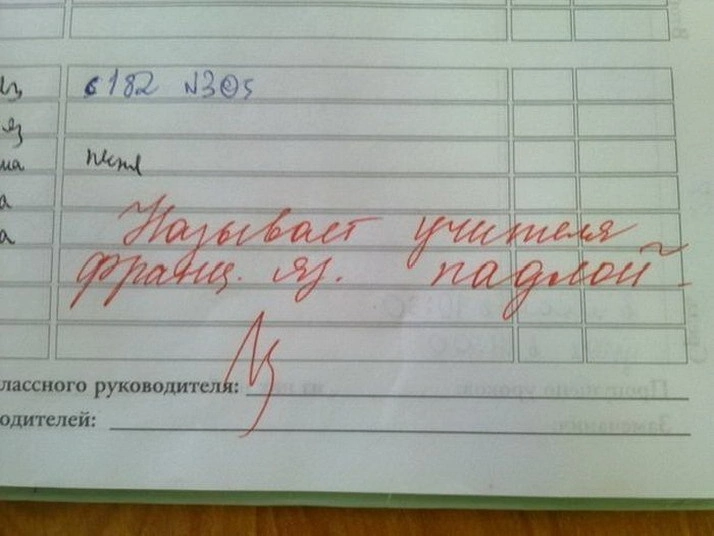 с182 №305
яз
ма
Называет учителя
франц. яз. падлой.
лассного руководителя:
одителей: